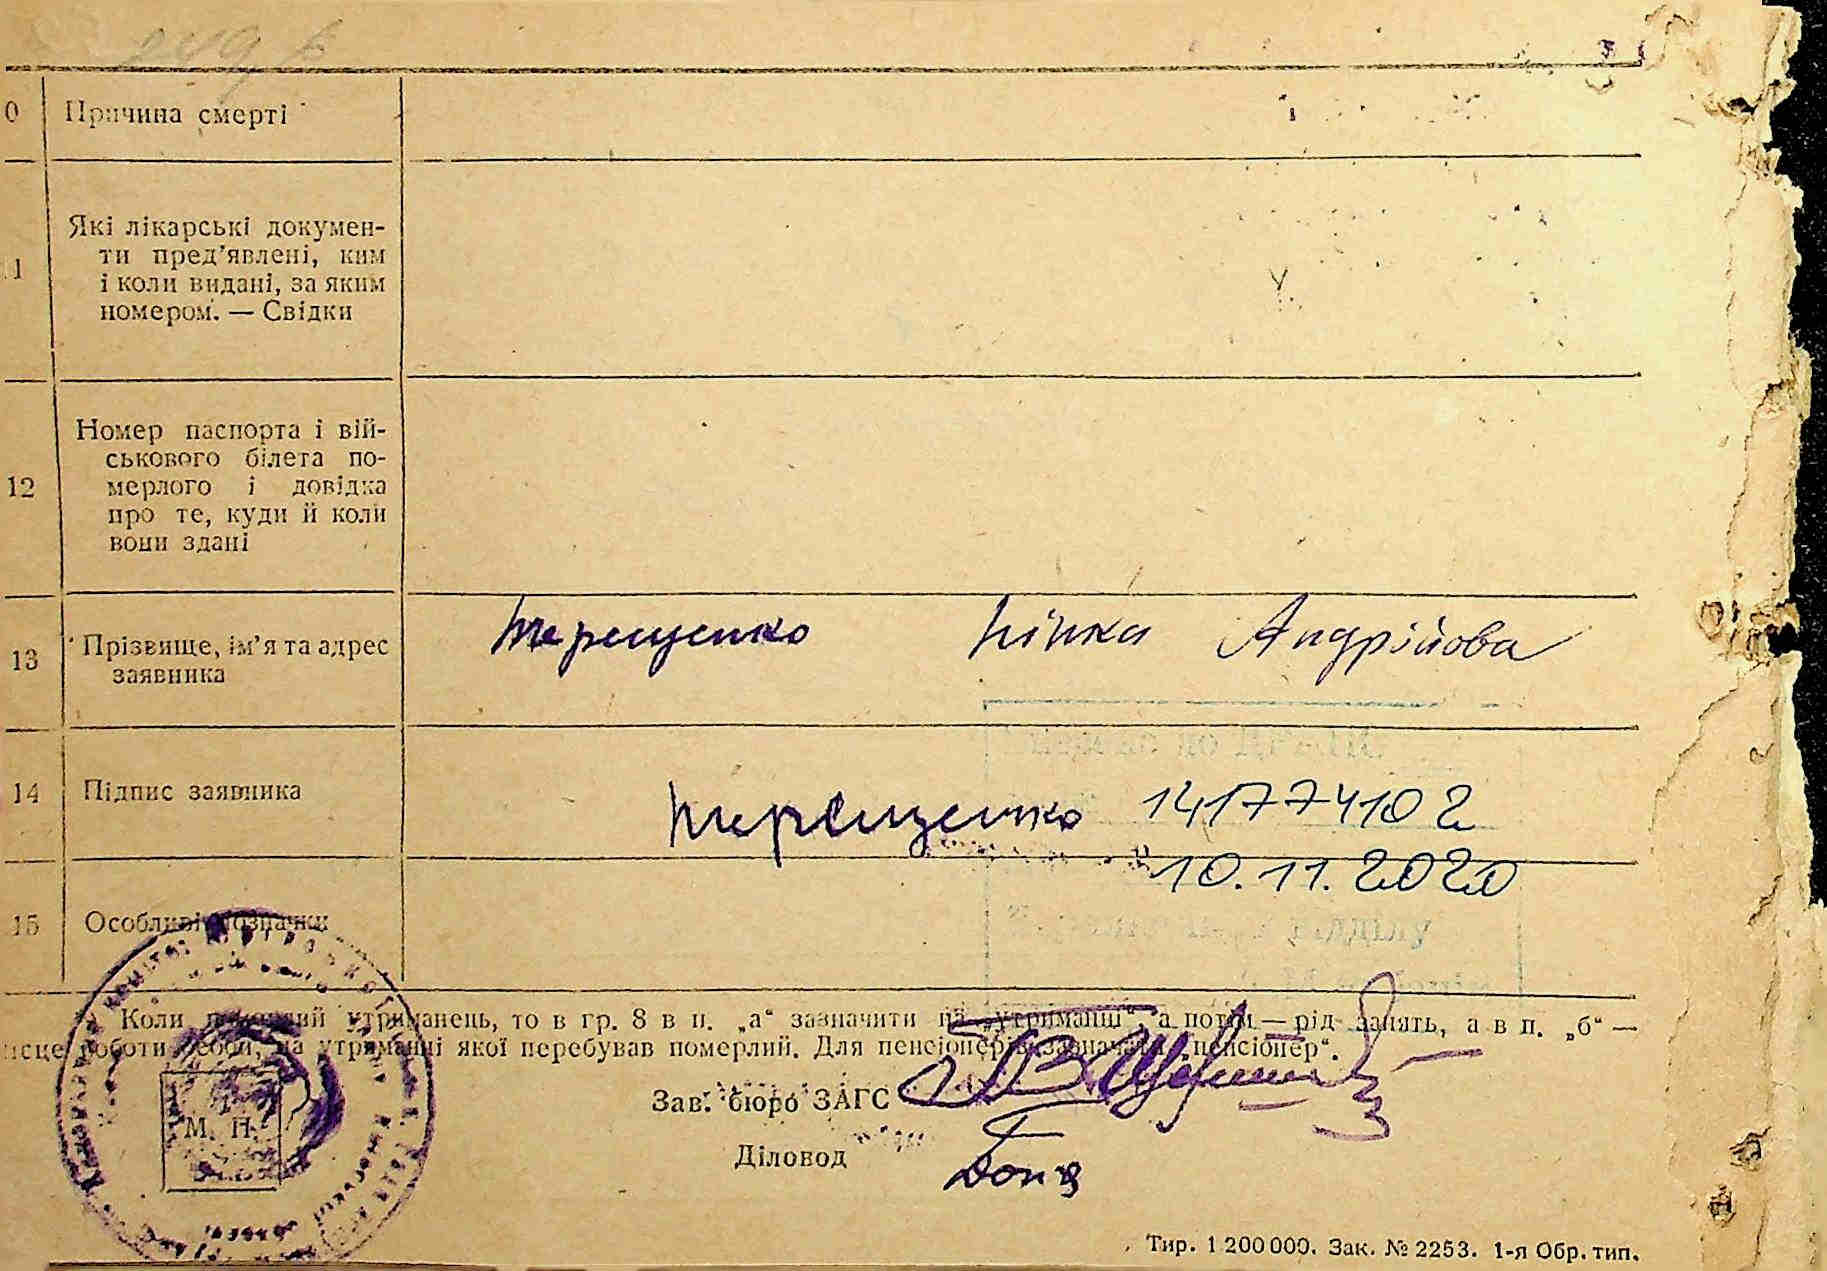 0 Причина смерті
Які лікарські докумен-
11 ти пред’явлені, ким
і коли видані, за яким
номером. — Свідки
Номер паспорта і вій-
ськового білета по-
12 мерлого і довідка
про те, куди й коли
вони здані
13 Прізвище, ім’я та адрес
заявника
Терещенко Нінка Андрійова
14 Підпис заявника
Терещенко 141774102
10.11.2020
15 Особливі позначки
відділу
Коли померлий утриманець, то в гр. 8 в п. „а“ зазначити на „утриманні“ а потім — рід занять, а в п. „б“ —
місце роботи особи, на утриманні якої перебував померлий. Для пенсіонерів зазначати „пенсіонер“.
Зав. бюро ЗАГС
М. П.
Діловод
Тир. 1 200 000. Зак. № 2253. 1-я Обр. тип.